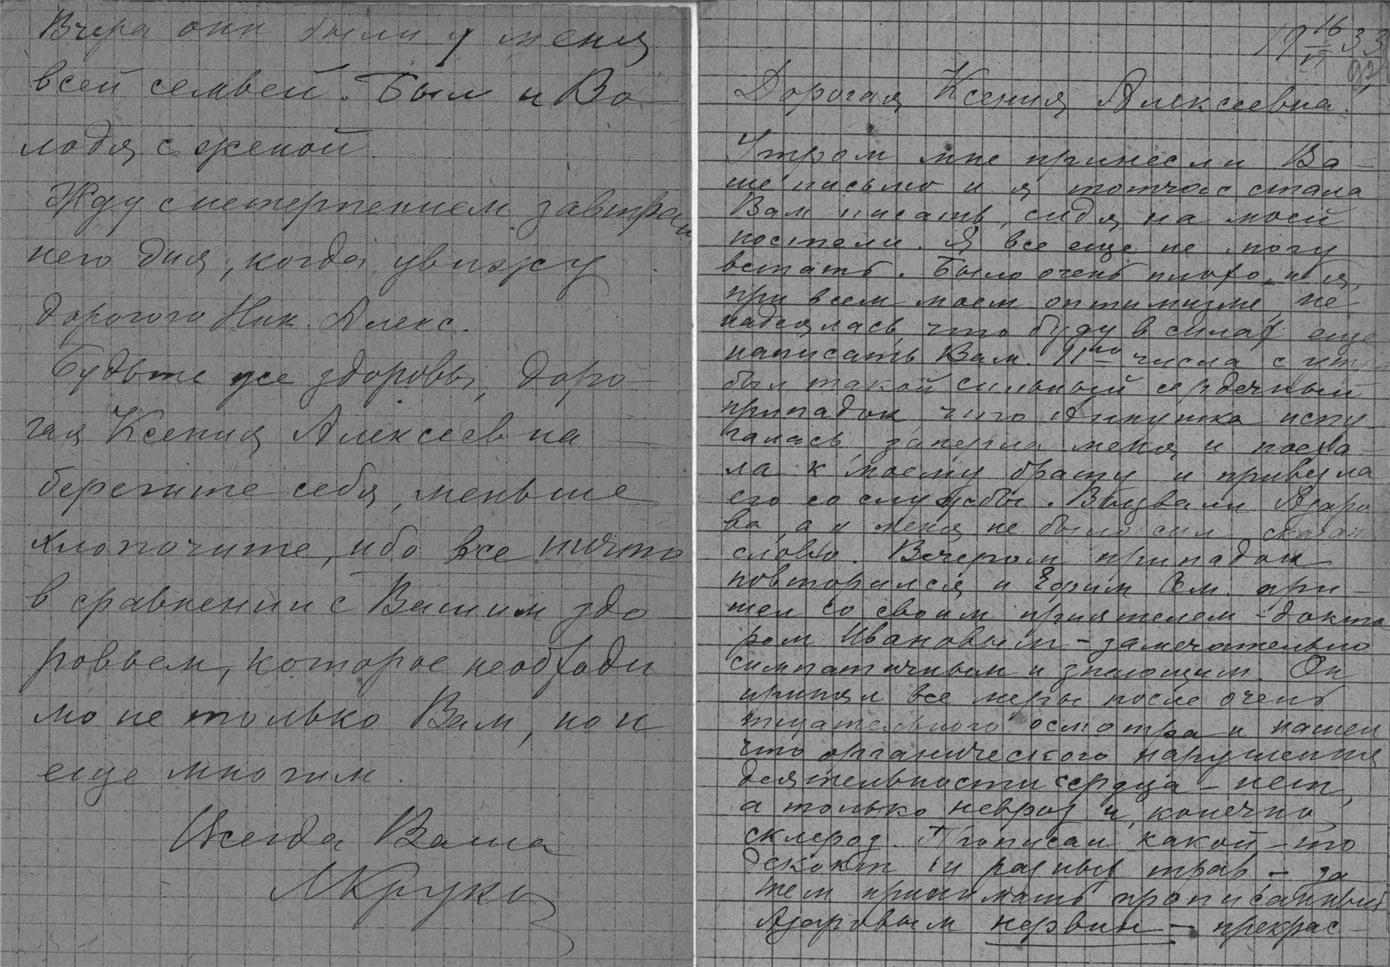 Вчера они были у меня
всей семьей. Был и Во-
лодя с женой.
Жду с нетерпением завтраш
него дня, когда увижу
дорогого Ник. Алекс.
Будьте же здоровы, доро-
гая Ксения Алексеевна
берегите себя, меньше
хлопочите, ибо все ничто
в сравнении с Вашим здо
ровьем, которое необходи
мо не только Вам, но и
еще многим.
Всегда Ваша
МКрук
19 16/VI 33
92
Дорогая Ксения Алексеевна!
Утром мне принесли Ва-
ше письмо и я тотчас стала
Вам писать, сидя на моей
постели. Я все еще не могу
встать. Было очень плохо и я,
при всем моем оптимизме, не
надеялась, что буду в силах еще
написать Вам. 11го числа с утра
был такой сильный сердечный
припадок, что Аннушка испу
галась, заперла меня и поеха-
ла к моему брату и привезла
его со службы. Вызвали Азаро
ва, а у меня не было сил сказать
слово. Вечером припадок
повторился и Ефим Сем. при-
шел со своим приятелем - докто
ром Ивановым - замечательно
симпатичным и знающим. Он
принял все меры после очень
тщательного осмотра и нашел
что органического нарушения
деятельности сердца - нет,
а только невроз и, конечно,
склероз. Прописал какой-то
декокт из разных трав - за
тем принимать прописанный
Азаровым нервин - прекрас